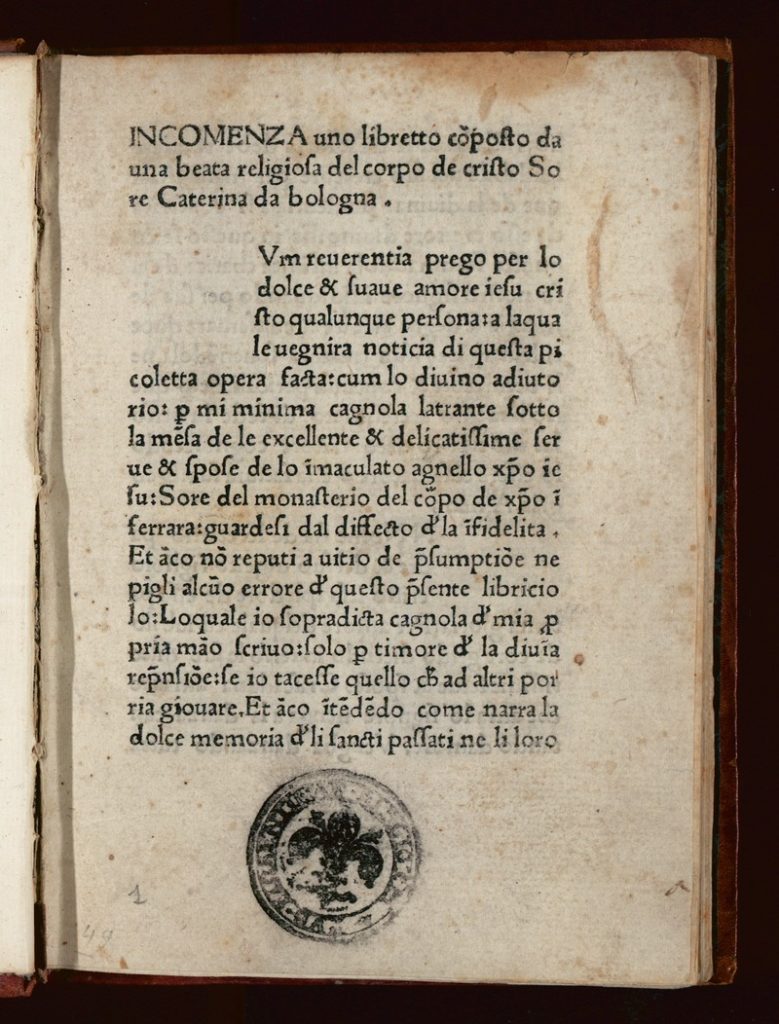 INCOMENZA uno libretto cõpoſto da
una beata religioſa del corpo de criſto So
re Caterina da bologna .
Vm reuerentia prego per lo
dolce & ſuaue amore ieſu cri
ſto qualunque perſona:a laqua
le uegnira noticia di queſta pi
coletta opera facta:cum lo diuino adiuto
rio: ꝑ mi minima cagnola latrante ſotto
la mēſa de le excellente & delicatiſſime ſer
ue & ſpoſe de lo īmaculato agnello xp̄o ie
ſu:Sore del monaſterio del cōpo de xp̄o ī
ferrara:guardeſi dal diffecto đ la īfidelita .
Et āco nō reputi a uitio de p̄ſumptiōe ne
pigli alcūo errore đ queſto p̄ſente libricio
lo:Loquale io ſopradicta cagnola đ mia ꝓ
pria māo ſcriuo:ſolo ꝑ timore đ la diuīa
rep̄nſiōe:ſe io taceſſe quello cħ ad altri por
ria giouare.Et āco ītēdēdo come narra la
dolce memoria đ li ſancti paſſati ne li loro
1
49